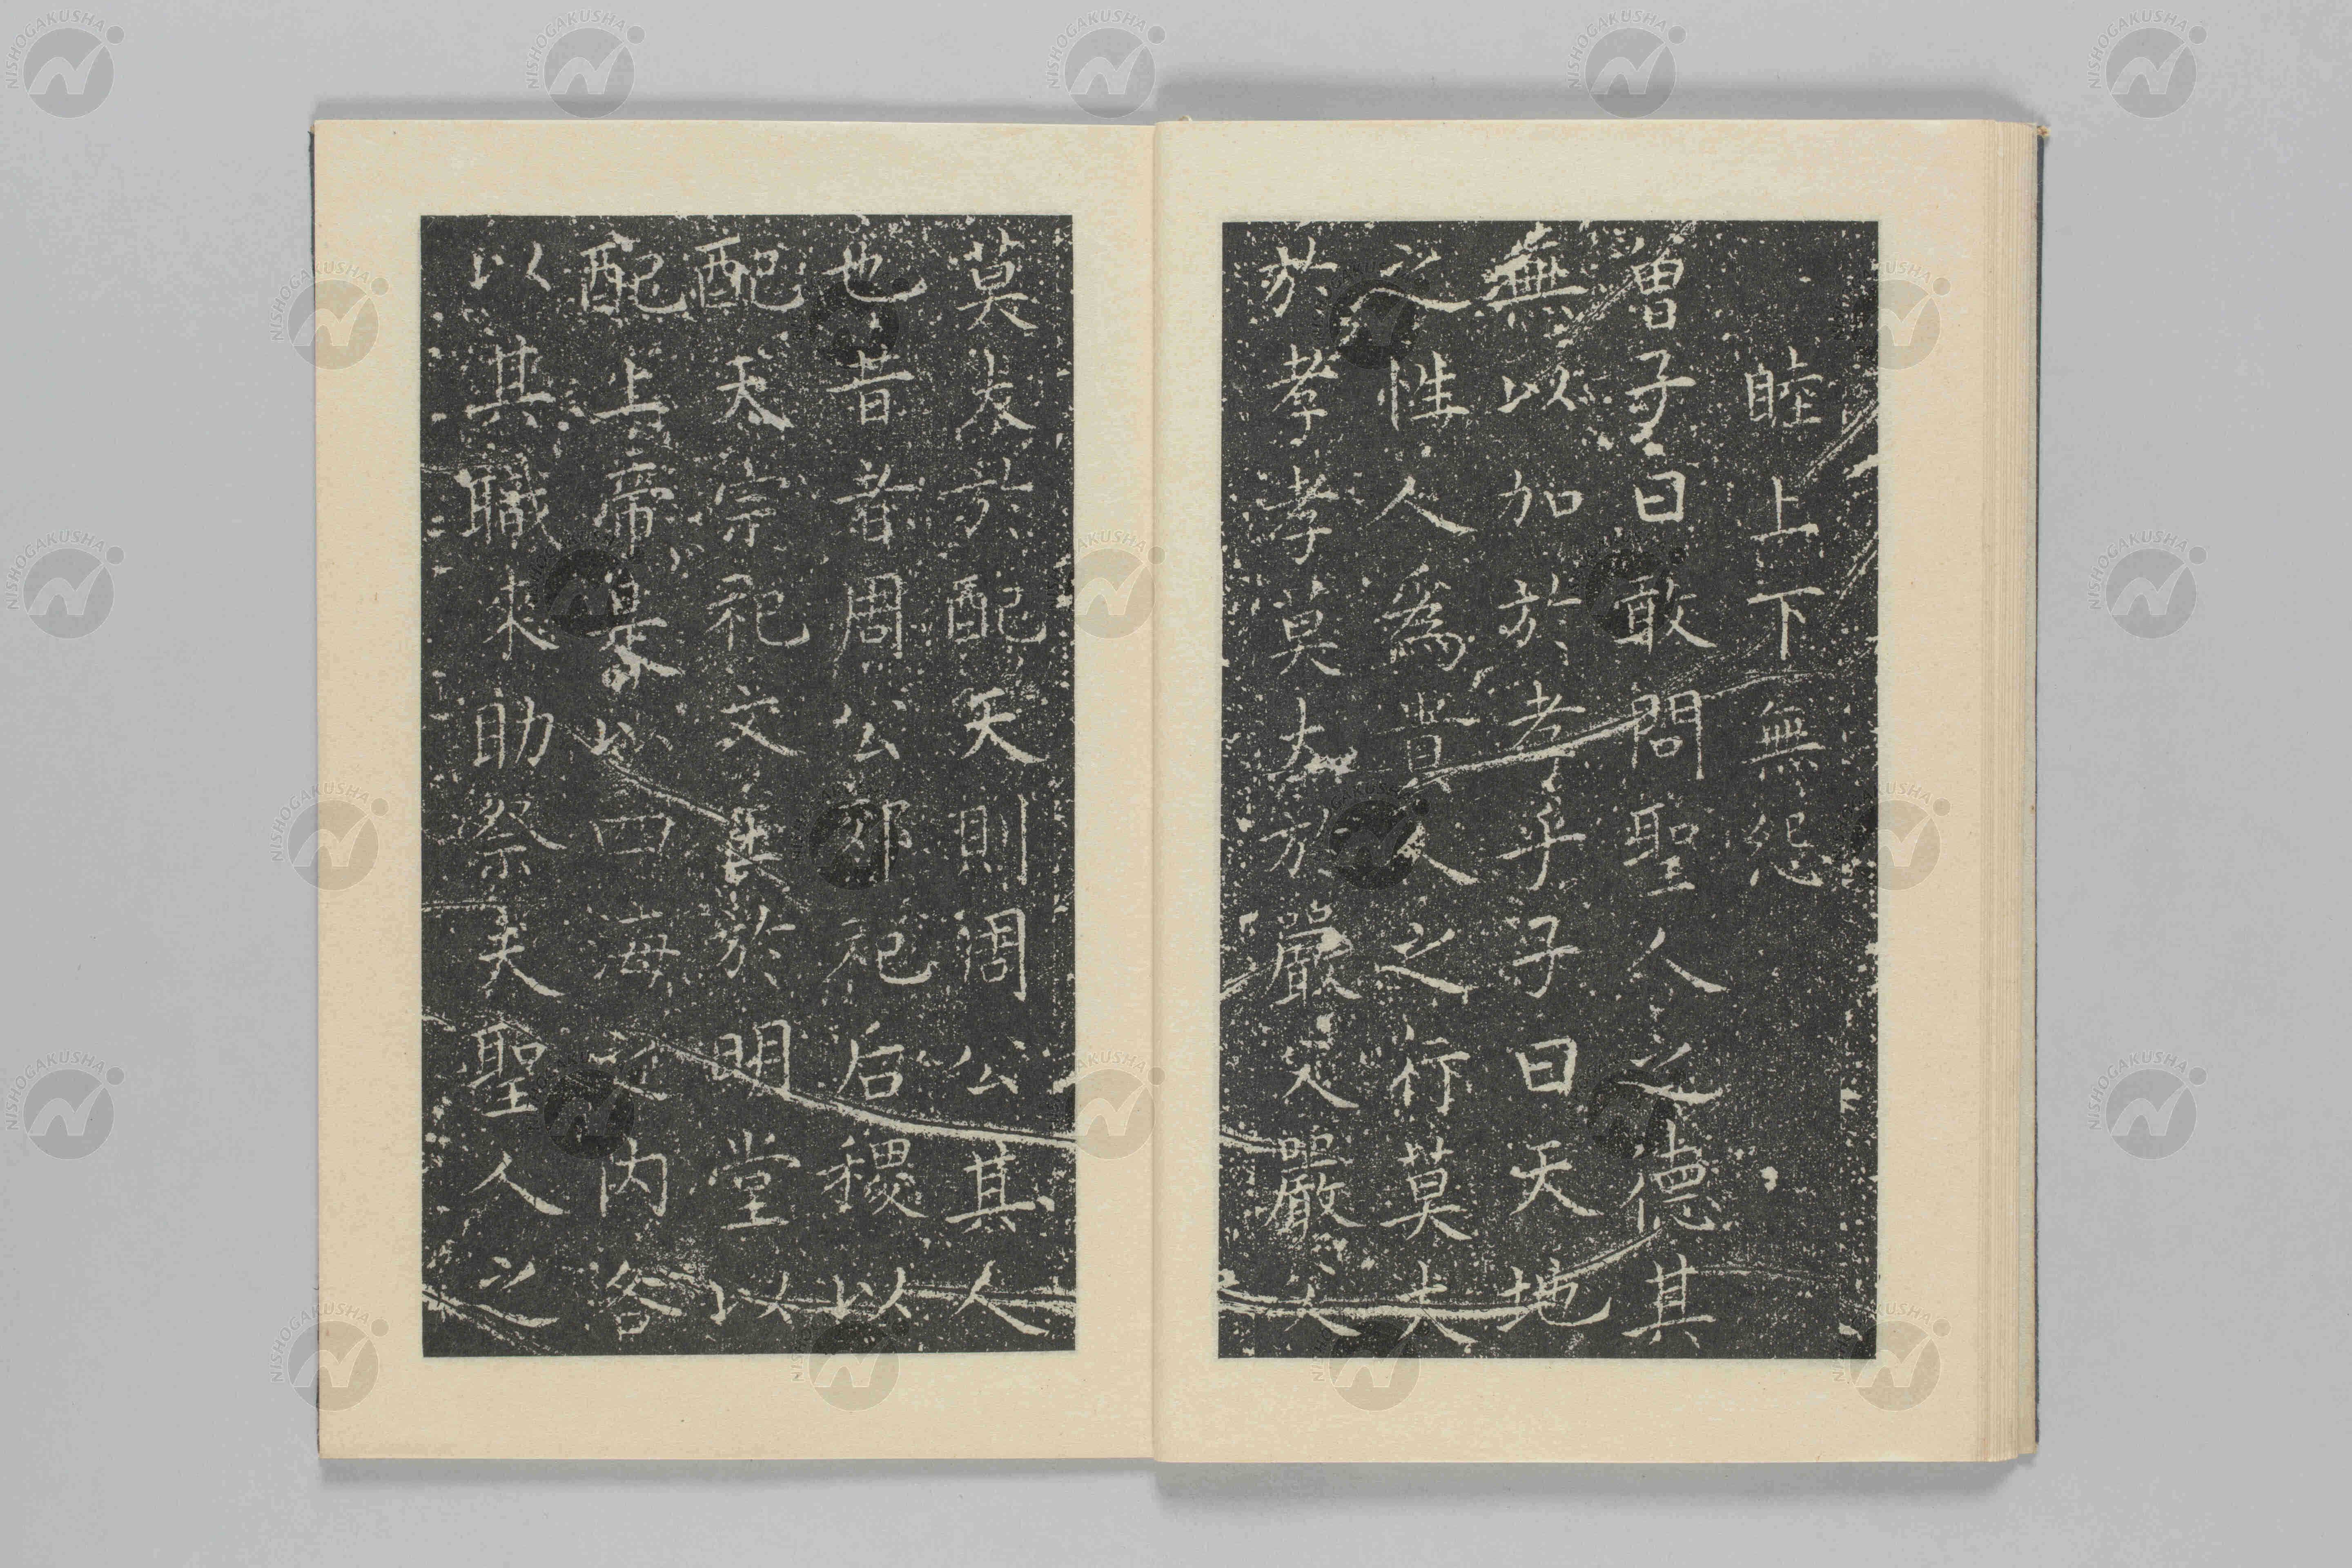 睦上下無怨
曽子曰敢問聖人之徳其
無以加於孝乎子曰天地
之性人爲貴人之行莫大
於孝孝莫大於嚴父嚴父
莫大於配天則周公其人
也昔者周公郊祀后稷以
配天宗祀文王於明堂以
配上帝是以四海之内各
以其職來助祭夫聖人之
NISHOGAKUSHA